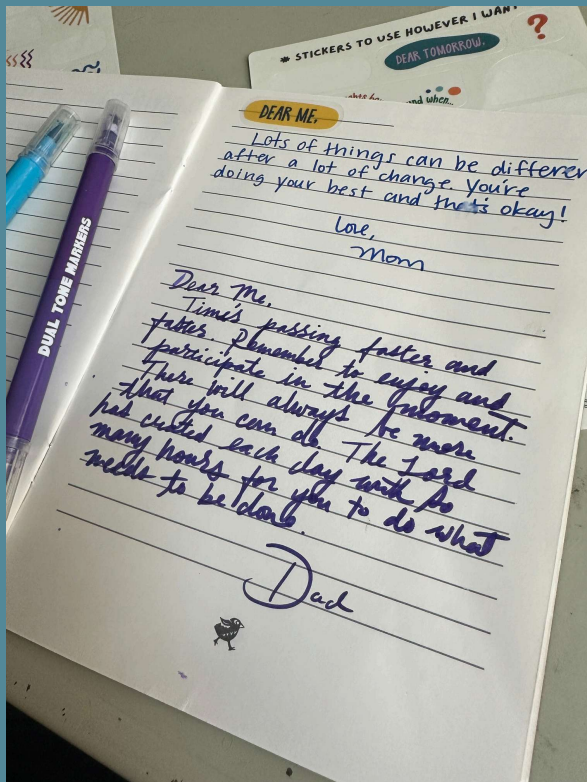 * STICKERS TO USE HOWEVER I WANT
DEAR TOMORROW,
and when...
DEAR ME,
Lots of things can be differen
after a lot of change. You're
doing your best and that's okay!
Love,
Mom
Dear Me,
Time's passing faster and
faster. Remember to enjoy and
participate in the moment.
There will always be more
that you can do. The Lord
has created each day with so
many hours for you to do what
needs to be done.
Dad
DUAL TONE MARKERS